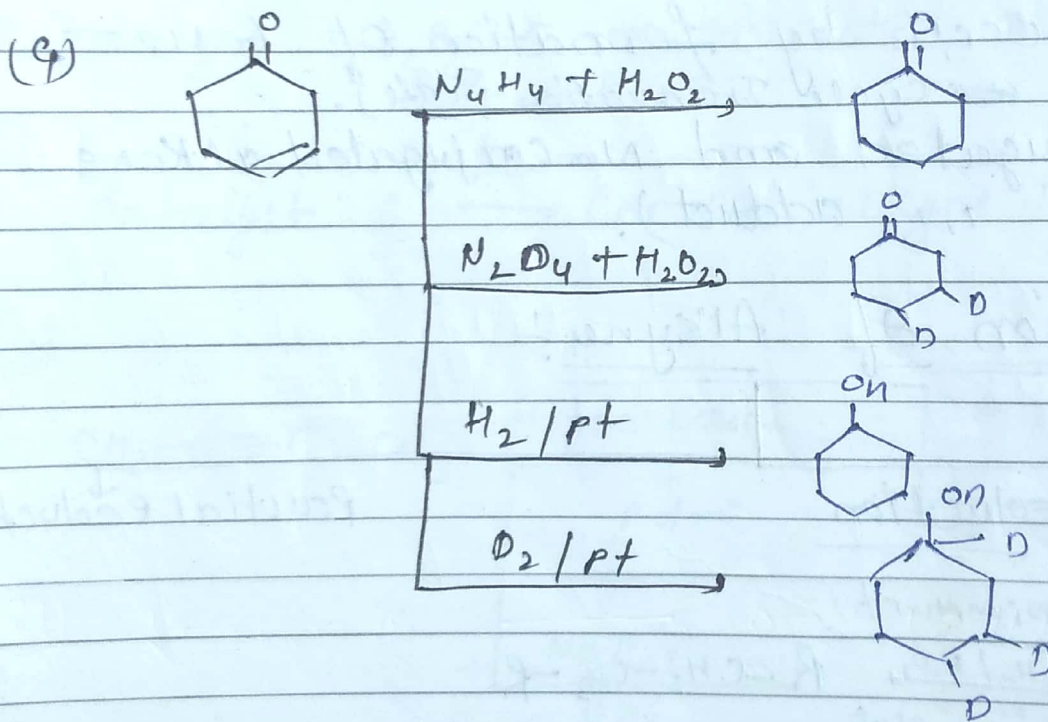 (9) O N₄H₄ + H₂O₂ O
N₂D₄ + H₂O₂ O
D
D
H₂/pt OH
D₂/pt OH
D
D
D